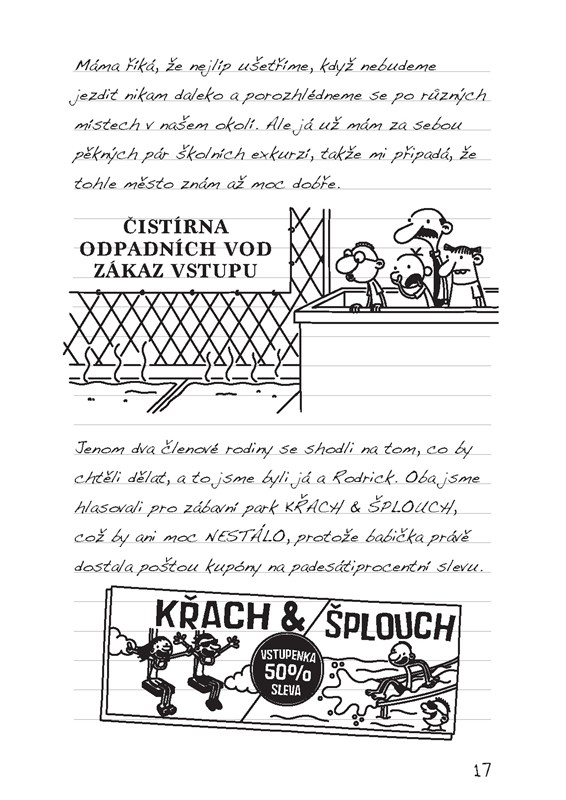 Máma říká, že nejlíp ušetříme, když nebudeme
jezdit nikam daleko a porozhlédneme se po různých
místech v našem okolí. Ale já už mám za sebou
pěkných pár školních exkurzí, takže mi připadá, že
tohle město znám až moc dobře.
ČISTÍRNA
ODPADNÍCH VOD
ZÁKAZ VSTUPU
Jenom dva členové rodiny se shodli na tom, co by
chtěli dělat, a to jsme byli já a Rodrick. Oba jsme
hlasovali pro zábavní park KŘACH & ŠPLOUCH,
což by ani moc NESTÁLO, protože babička právě
dostala poštou kupóny na padesátiprocentní slevu.
KŘACH & ŠPLOUCH
VSTUPENKA
50%
SLEVA
17